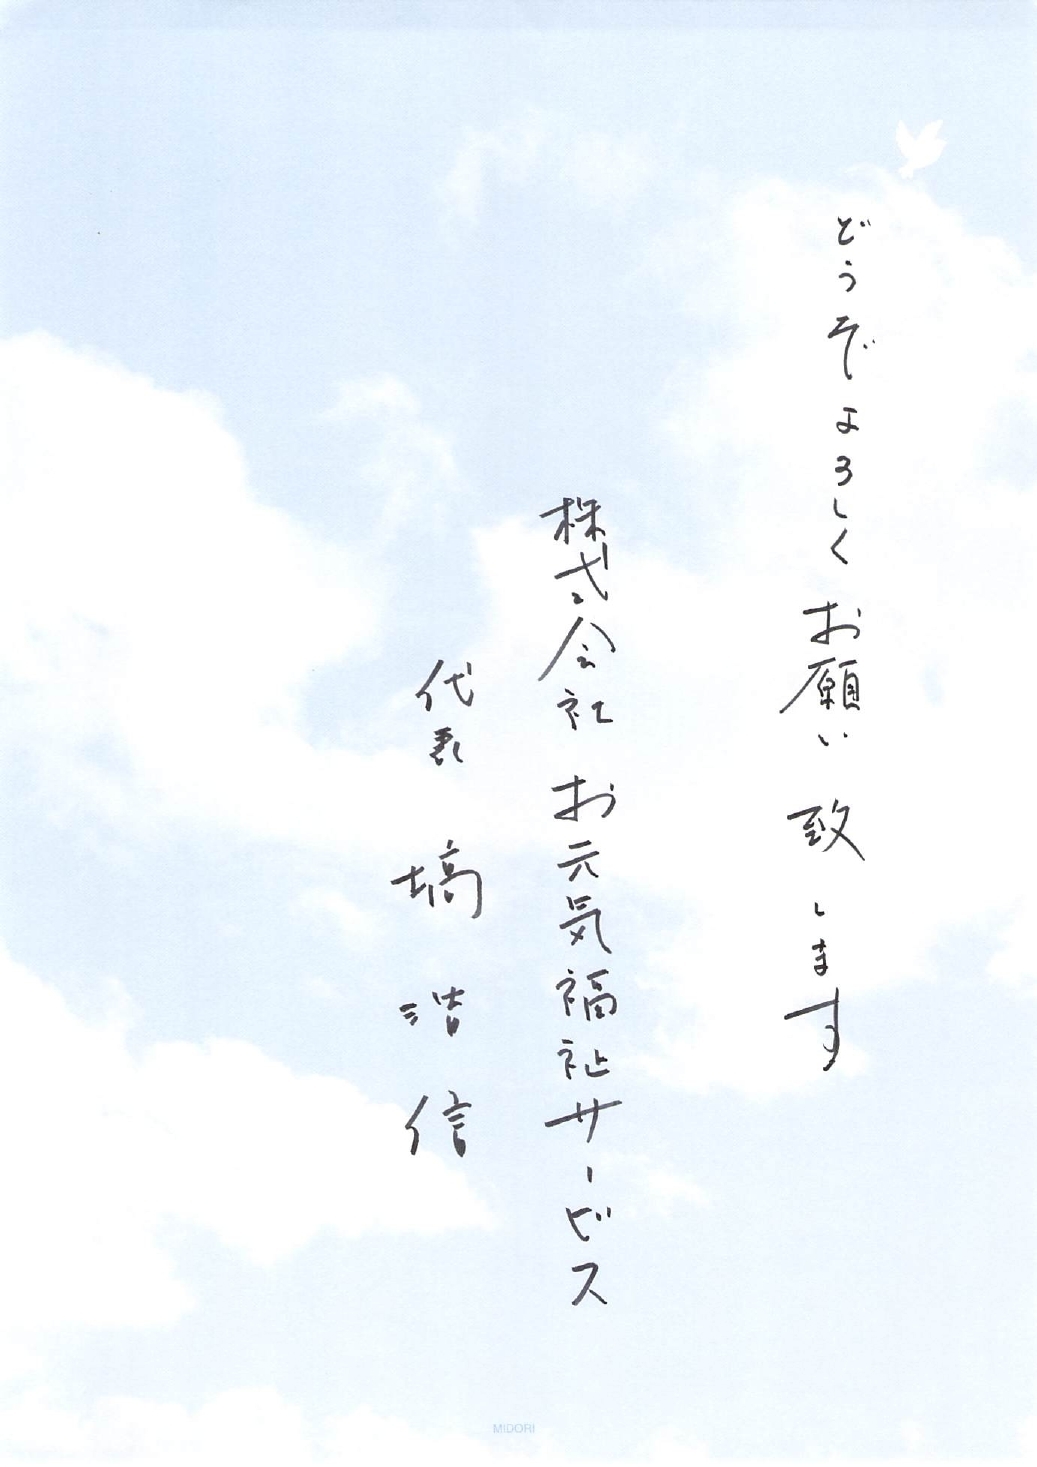 どうぞよろしくお願い致します
株式会社 お元気福祉サービス
代表 塙 信
MIDORI